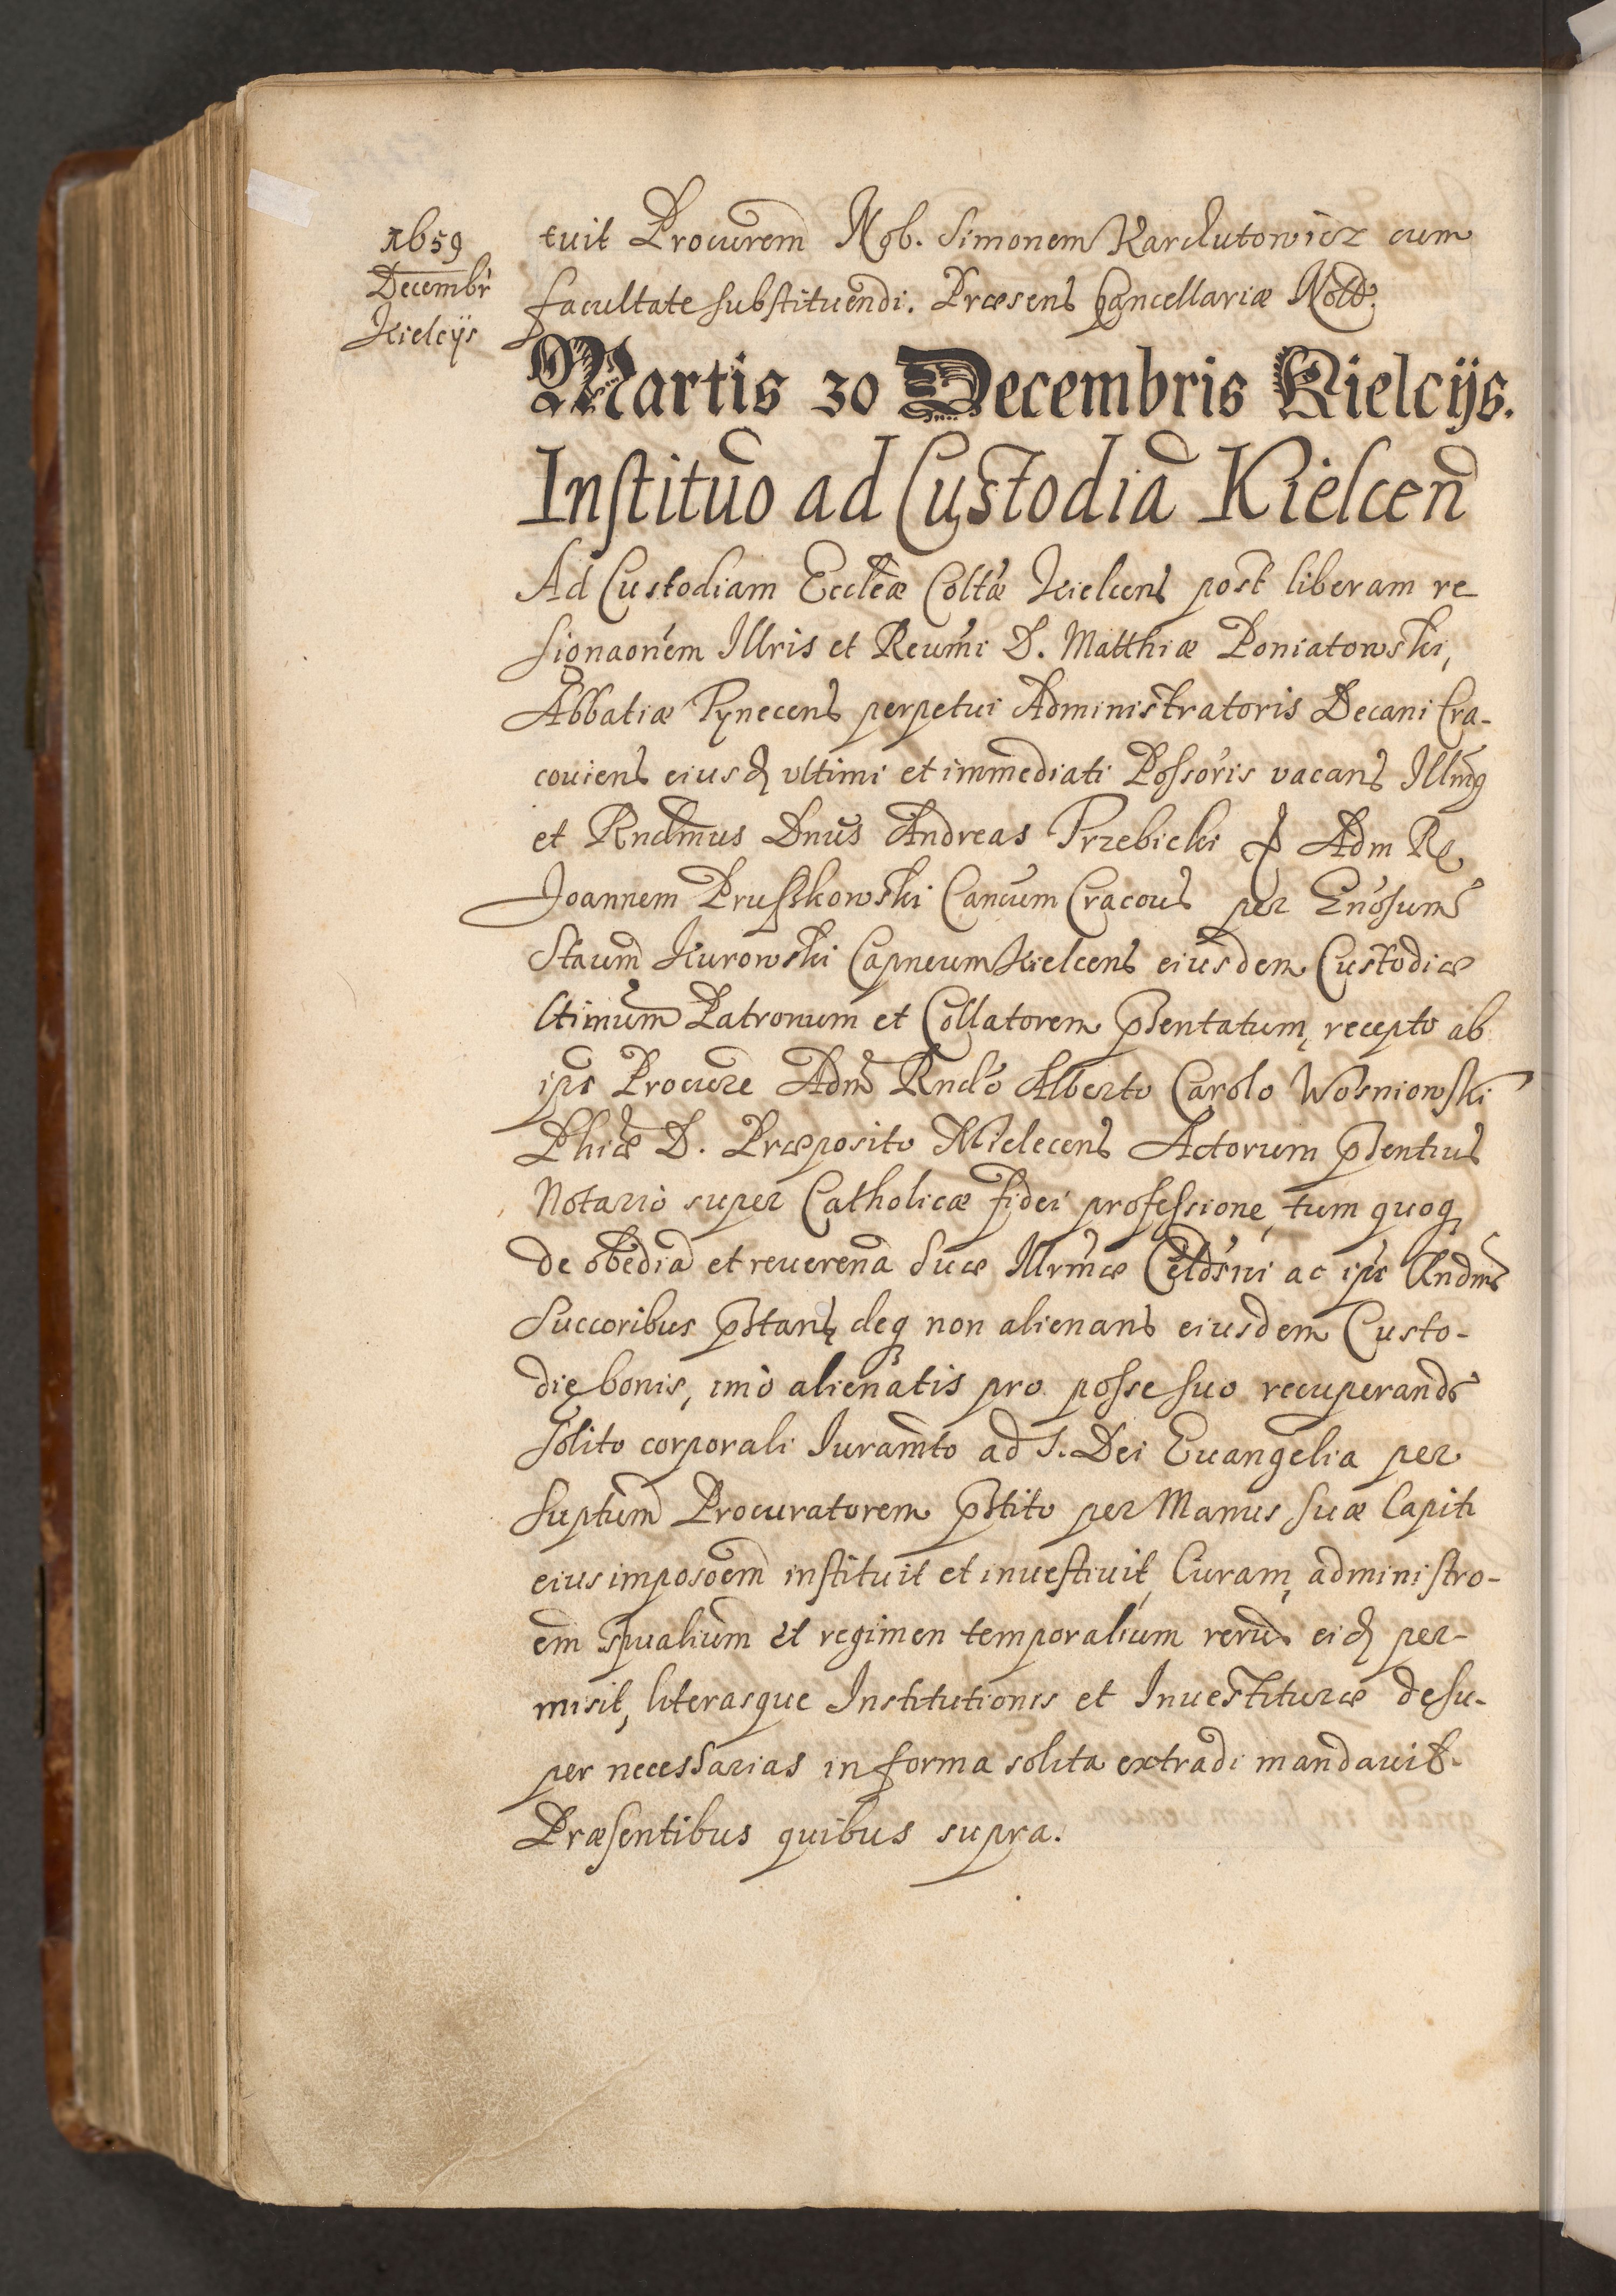 1659
Decembr
Kielciis
tuit Procurem Ngb. Simonem Karchutowicz cum
facultate substituendi. Præsens Cancellariæ Nott.
Martis 30 Decembris Kielciis.
Instituo ad Custodia Kielcen
Ad Custodiam Eccleæ Coltæ Kielcens post liberam re-
signaonem Illris et Reumi D. Matthiæ Poniatowski,
Abbatiæ Tynecens perpetui Administratoris Decani Cra-
couiens eiusd ultimi et immediati Possoris vacans Illmg
et Rndmus Dnus Andreas Trzebicki Adm R
Joannem Pruszkowski Cancum Cracous per Gnosum
Staum Kurowski Capneum Kielcens eiusdem Custodiæ
ltimum Patronum et Collatorem pSentatum, recepto ab
ips Procure Adm Rndo Alberto Carolo Wosniowski
Phiæ D. Præposito Mielecens Actorum pSentius
Notario super Catholicæ fidei professione, tum quoq
de obedia et reuerena Suæ Illrmæ Celdsni ac ips Rndms
Succoribus pStans, deq non alienans eiusdem Custo-
dię bonis, imò alienatis pro posse suo recuperands
solito corporali Iuramto ad S. Dei Euangelia per
Suptum Procuratorem pStito per Manus suæ Capiti
eius imposoem instituit et inuestiuit, Curam, administro-
em spualium et regimen temporalium rerum eid per-
misit, literasque Institutionis et Inuestituræ desu-
per necessarias in forma solita extradi mandauit.
Præsentibus quibus supra.